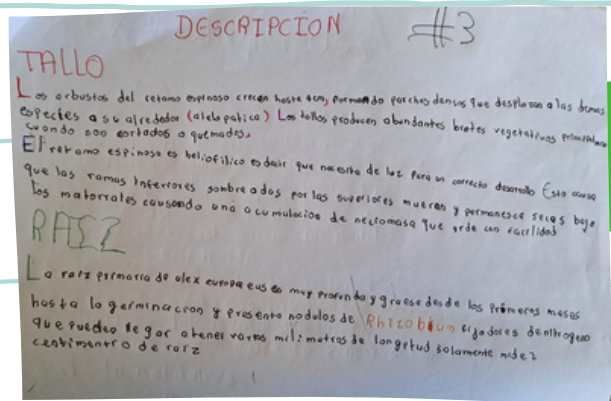 DESCRIPCION #3
TALLO
Los arbustos del retamo espinoso crecen hasta 4m, formando parches densos que desplasan a las demas
especies a su alrededor (alelopatica) Los tallos producen abundantes brotes vegetativos
cuando son cortados o quemados.
El retamo espinoso es heliofilico es decir que necesita de luz para un correcto desarrollo Esto causa
que las ramas inferiores sombreadas por las superiores mueran y permanesca secas bajo
los matorrales causando una acumulacion de necromasa que arde con facilidad
RAIZ
La raiz primaria de ulex europaeus es muy profunda y gruese desde los primeros meses
hasta la germinacion y presenta nodulos de Rhizobium fijadores de nitrogeno
que pueden llegar a tener varios milimetros de longitud solamente mide 2
centimentro de raiz